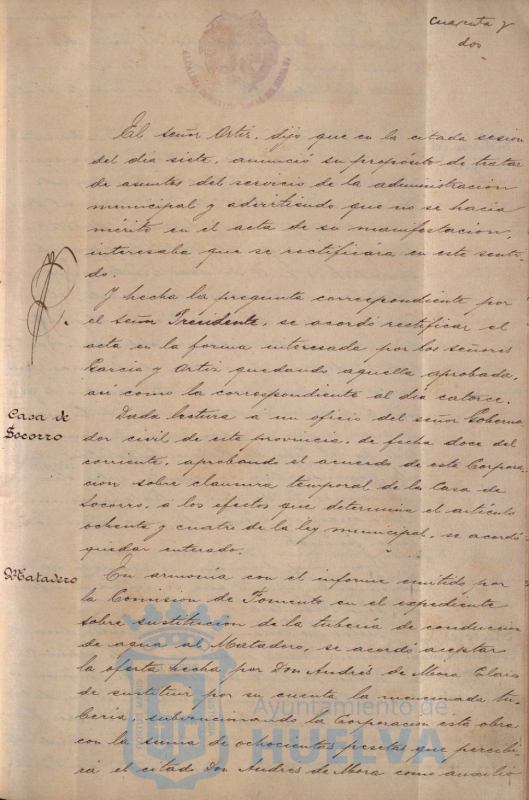 cuarenta y
dos
El señor Ortiz, dijo que en la citada sesion
del dia siete, anunció su propósito de tratar
de asuntos del servicio de la administracion
municipal y advirtiendo que no se hacia
mérito en el acta de su manifestacion,
interesaba que se rectificára en este senti-
do.
Y hecha la pregunta correspondiente por
el señor Presidente, se acordó rectificar el
acta en la forma interesada por los señores
Garcia y Ortiz quedando aquella aprobada,
asi como la correspondiente al dia catorce.
Casa de
Socorro
Dada lectura á un oficio del señor Goberna
dor civil de esta provincia, de fecha doce del
corriente, aprobando el acuerdo de esta Corpora-
cion sobre clausura temporal de la Casa de
Socorro, á los efectos que determina el artículo
ochenta y cuatro de la ley municipal, se acordó
quedar enterado.
Matadero
En armonía con el informe emitido por
la Comision de Fomento en el expediente
sobre sustitucion de la tubería de conduccion
de agua al Matadero, se acordó aceptar
la oferta hecha por Don Andrés de Mora Claros
de sustituir por su cuenta la mencionada tu-
bería, subvencionando la Corporacion esta obra
con la suma de ochocientas pesetas que percibi
rá el citado Don Andrés de Mora como auxilio
Ayuntamiento de
HUELVA